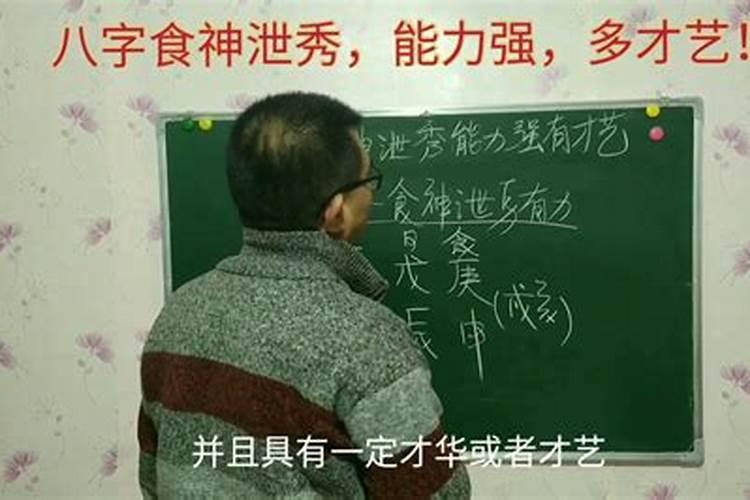 八字食神泄秀，能力强，多才艺！
泄秀能力强有才艺
食神泄身有力
日 食
戊 庚
辰 申 (戌亥)
并且具有一定才华或者才艺